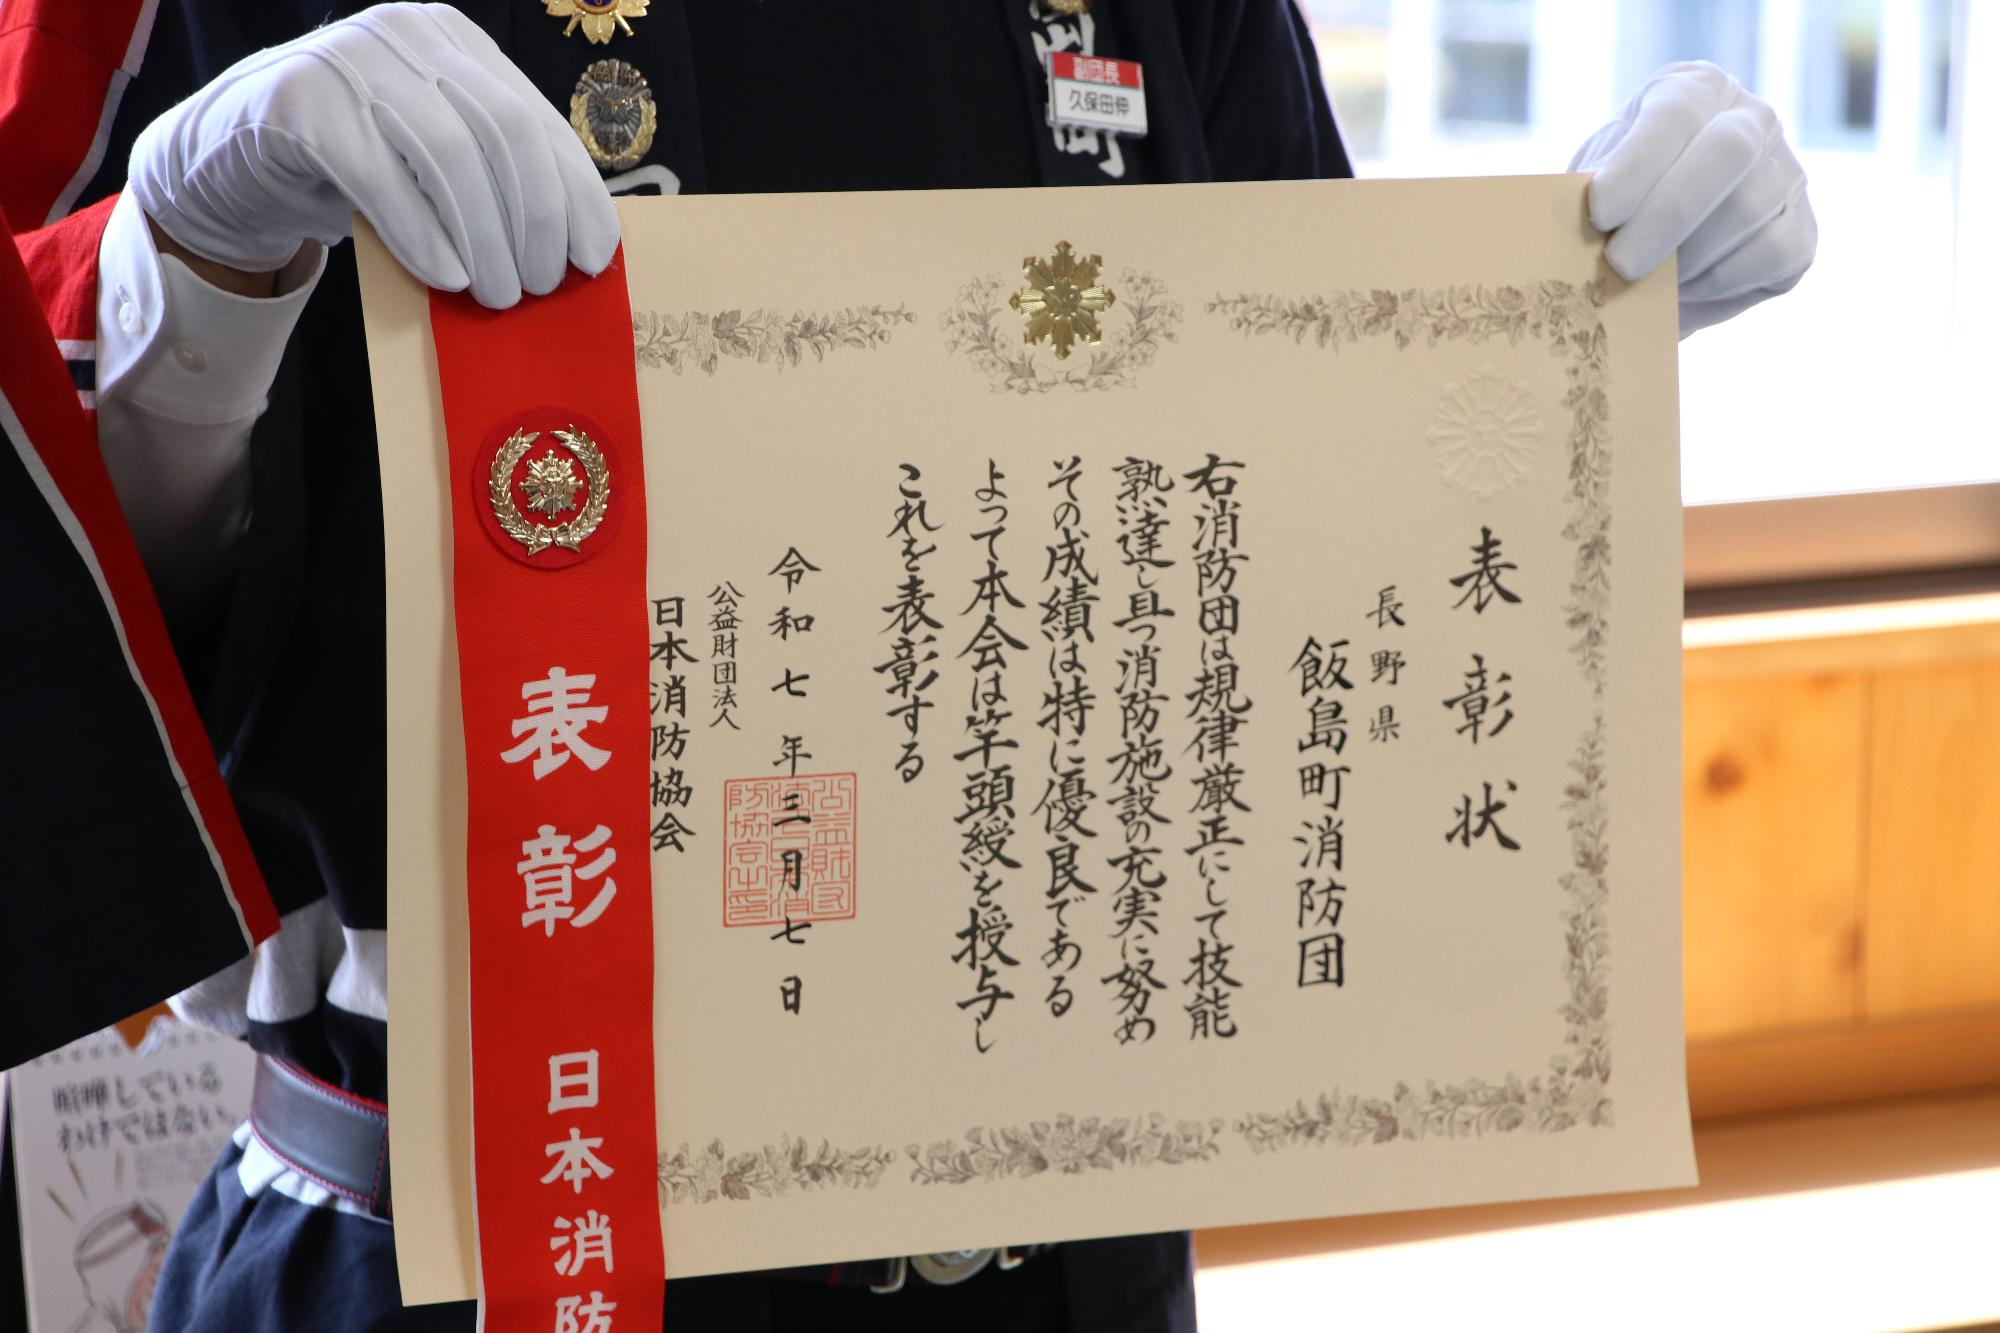 表彰状
長野県
飯島町消防団
右消防団は規律厳正にして技能
熟達し且つ消防施設の充実に努め
その成績は特に優良である
よって本会は竿頭綬を授与し
これを表彰する
令和七年三月七日
公益財団法人
日本消防協会
表彰 日本消防
副団長
久保田伸
喧嘩している
わけではない。